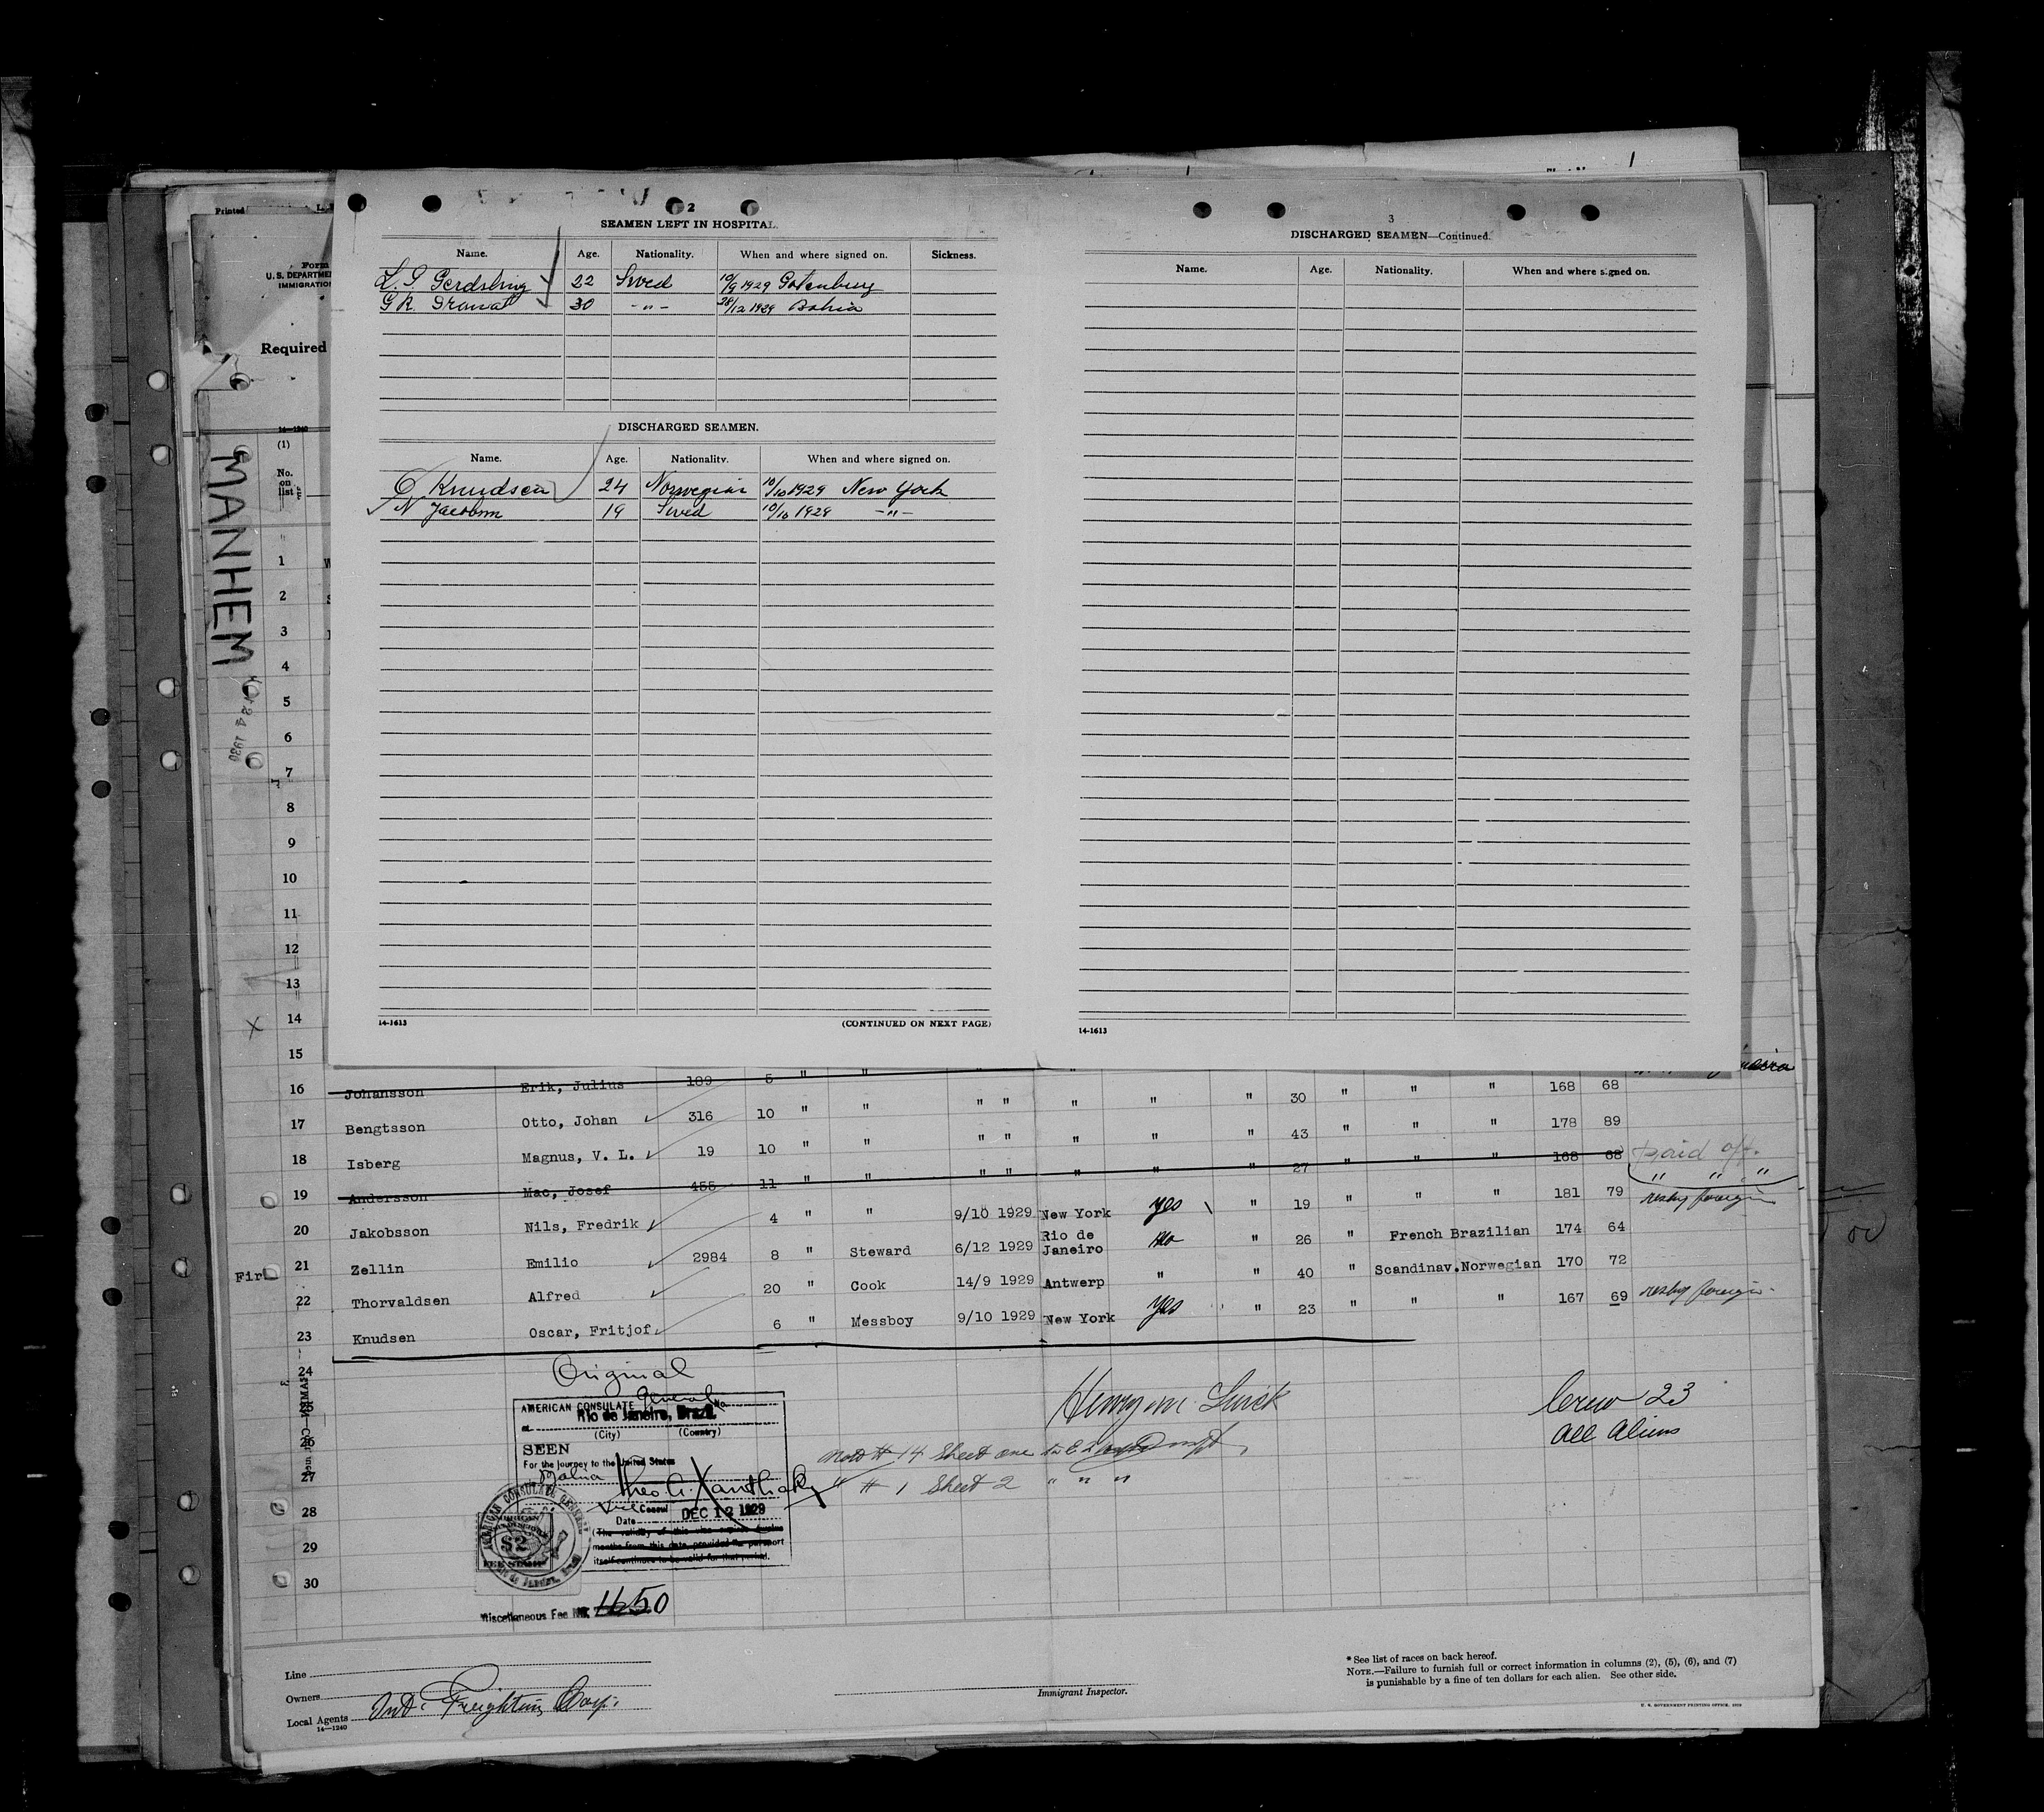 Printed
2
SEAMEN LEFT IN HOSPITAL.
Name. Age. Nationality. When and where signed on. Sickness.
22 Swed 10/9 1929 Gotenburg
G R. Granat 30 -"- 28/12 1929 Bahia
DISCHARGED SEAMEN.
Name. Age. Nationality. When and where signed on.
O Knudsen 24 Norwegian 10/10 1929 New York
N Jacobsen 19 Swed 10/10 1929 -"-
14-1613 (CONTINUED ON NEXT PAGE)
3
DISCHARGED SEAMEN—Continued.
Name. Age. Nationality. When and where signed on.
14-1613
Form
U. S. DEPARTME
IMMIGRATION
Required
14—1240
(1)
No.
on
list
MANHEM
1
2
3
4
5
6
7
8
9
10
11
12
13
X 14
15
16 Johansson Erik, Julius 189 5 " " " " " " " 30 " " " 168 68
17 Bengtsson Otto, Johan 316 10 " " " " " " " 43 " " " 178 89
18 Isberg Magnus, V. L. 19 10 " " " " " " " 27 " " " 168 68 Paid off.
19 Andersson Mac, Josef 455 11 " " " "
20 Jakobsson Nils, Fredrik 4 " " 9/10 1929 New York yes " 19 " " " 181 79 reshp foreign
21 Zellin Emilio 2984 8 " Steward 6/12 1929 Rio de Janeiro no " 26 " French Brazilian 174 64
22 Thorvaldsen Alfred 20 " Cook 14/9 1929 Antwerp " " 40 " Scandinav. Norwegian 170 72
23 Knudsen Oscar, Fritjof 6 " Messboy 9/10 1929 New York yes " 23 " " " 167 69 reshp foreign
24
26
27
28
29
30
Original
AMERICAN CONSULATE General No.
at Rio de Janeiro, Brazil
(City) (Country)
SEEN
For the journey to the United States
Bahia
Theo. A. Xanthaky
Vice Consul
Date DEC 12 1929
(The validity of this visa expires twelve
months from this date, provided the passport
itself continues to be valid for that period.
$2
FEE STAMP
Miscellaneous Fee No. 1650
Crew 23
All Aliens
# 14 Sheet one
" # 1 Sheet 2 " " "
Line
Owners
Local Agents Int. Freighting Corp.
14—1240
Immigrant Inspector.
* See list of races on back hereof.
NOTE.—Failure to furnish full or correct information in columns (2), (5), (6), and (7)
is punishable by a fine of ten dollars for each alien. See other side.